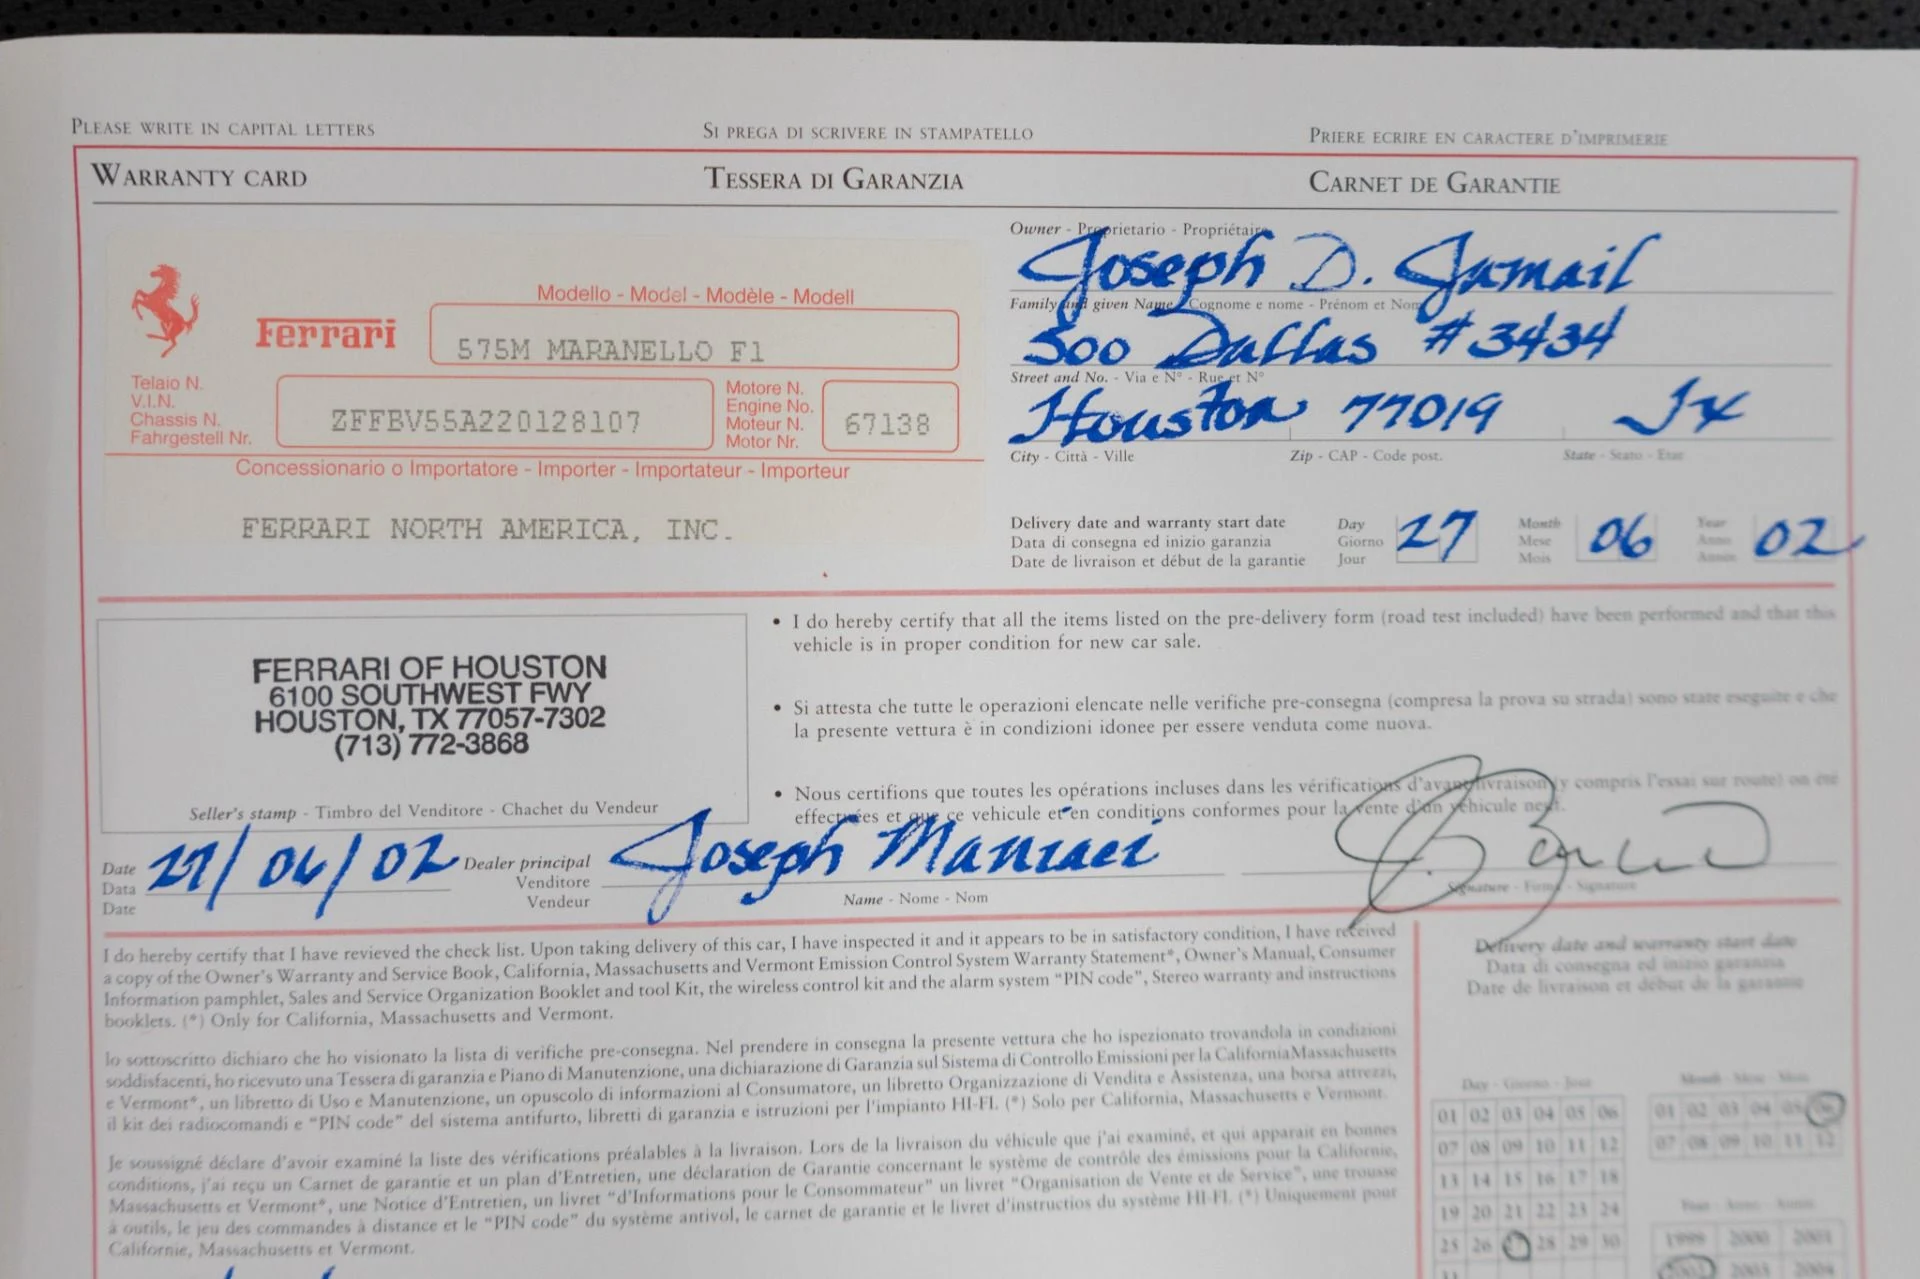 PLEASE WRITE IN CAPITAL LETTERS
SI PREGA DI SCRIVERE IN STAMPATELLO
PRIERE ECRIRE EN CARACTERE D'IMPRIMERIE
WARRANTY CARD
TESSERA DI GARANZIA
CARNET DE GARANTIE
Modello - Model - Modèle - Modell
Ferrari
575M MARANELLO F1
Telaio N.
V.I.N.
Chassis N.
Fahrgestell Nr.
ZFFBV55A220128107
Motore N.
Engine No.
Moteur N.
Motor Nr.
67138
Concessionario o Importatore - Importer - Importateur - Importeur
FERRARI NORTH AMERICA, INC.
Owner - Proprietario - Propriétaire
Joseph D. Jamail
Family and given Name - Cognome e nome - Prénom et Nom
500 Dallas #3434
Street and No. - Via e N° - Rue et N°
Houston 77019 Tx
City - Città - Ville
Zip - CAP - Code post.
State - Stato - Etat
Delivery date and warranty start date
Data di consegna ed inizio garanzia
Date de livraison et début de la garantie
Day
Giorno
Jour
27
Month
Mese
Mois
06
Year
Anno
Année
02
FERRARI OF HOUSTON
6100 SOUTHWEST FWY
HOUSTON, TX 77057-7302
(713) 772-3868
Seller's stamp - Timbro del Venditore - Chachet du Vendeur
• I do hereby certify that all the items listed on the pre-delivery form (road test included) have been performed and that this
vehicle is in proper condition for new car sale.
• Si attesta che tutte le operazioni elencate nelle verifiche pre-consegna (compresa la prova su strada) sono state eseguite e che
la presente vettura è in condizioni idonee per essere venduta come nuova.
• Nous certifions que toutes les opérations incluses dans les vérifications d'avant livraison (y compris l'essai sur route) on été
effectuées et que ce vehicule et en conditions conformes pour la vente d'un véhicule neuf.
Date
Data
Date
27/06/02
Dealer principal
Venditore
Vendeur
Joseph Maniaci
Name - Nome - Nom
Signature - Firma - Signature
I do hereby certify that I have revieved the check list. Upon taking delivery of this car, I have inspected it and it appears to be in satisfactory condition, I have received
a copy of the Owner's Warranty and Service Book, California, Massachusetts and Vermont Emission Control System Warranty Statement*, Owner's Manual, Consumer
Information pamphlet, Sales and Service Organization Booklet and tool Kit, the wireless control kit and the alarm system "PIN code", Stereo warranty and instructions
booklets. (*) Only for California, Massachusetts and Vermont.
Io sottoscritto dichiaro che ho visionato la lista di verifiche pre-consegna. Nel prendere in consegna la presente vettura che ho ispezionato trovandola in condizioni
soddisfacenti, ho ricevuto una Tessera di garanzia e Piano di Manutenzione, una dichiarazione di Garanzia sul Sistema di Controllo Emissioni per la CaliforniaMassachusetts
e Vermont*, un libretto di Uso e Manutenzione, un opuscolo di informazioni al Consumatore, un libretto Organizzazione di Vendita e Assistenza, una borsa attrezzi,
il kit dei radiocomandi e "PIN code" del sistema antifurto, libretti di garanzia e istruzioni per l'impianto HI-FI. (*) Solo per California, Massachusetts e Vermont.
Je soussigné déclare d'avoir examiné la liste des vérifications préalables à la livraison. Lors de la livraison du véhicule que j'ai examiné, et qui apparait en bonnes
conditions, j'ai reçu un Carnet de garantie et un plan d'Entretien, une déclaration de Garantie concernant le système de contrôle des émissions pour la Californie,
Massachusetts et Vermont*, une Notice d'Entretien, un livret "d'Informations pour le Consommateur" un livret "Organisation de Vente et de Service", une trousse
à outils, le jeu des commandes à distance et le "PIN code" du système antivol, le carnet de garantie et le livret d'instructios du système HI-FI. (*) Uniquement pour
Californie, Massachusetts et Vermont.
Delivery date and warranty start date
Data di consegna ed inizio garanzia
Date de livraison et début de la garantie
Day - Giorno - Jour
01 02 03 04 05 06
07 08 09 10 11 12
13 14 15 16 17 18
19 20 21 22 23 24
25 26 27 28 29 30
31
Month - Mese - Mois
01 02 03 04 05 06
07 08 09 10 11 12
Year - Anno - Année
1999 2000 2001
2002 2003 2004